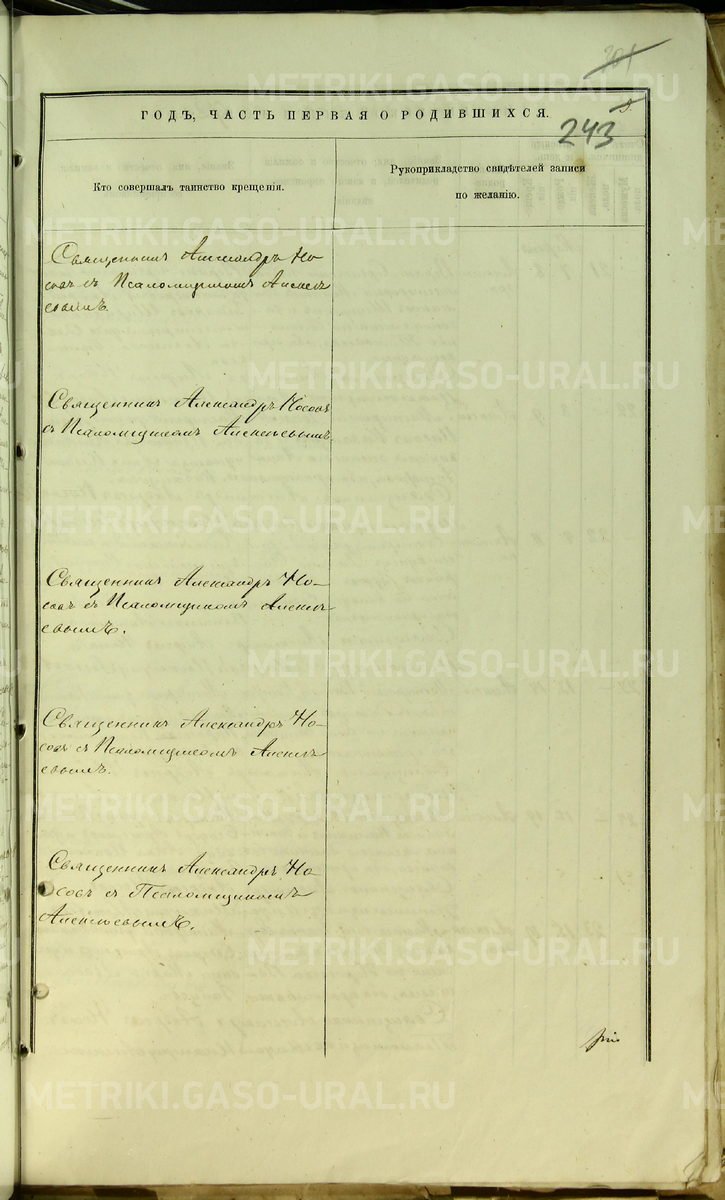 201
METRIKI.GASO-URAL.RU
ГОДЪ, ЧАСТЬ ПЕРВАЯ О РОДИВШИХСЯ.
243
Кто совершалъ таинство крещенія.
Рукоприкладство свидѣтелей записи
по желанію.
Священникъ Александръ Но-
совъ съ Псаломщикомъ Алексѣ
евымъ.
Священникъ Александръ Носовъ
съ Псаломщикомъ Алексѣевымъ.
Священникъ Александръ Но-
совъ съ Псаломщикомъ Алексѣ-
евымъ.
Священникъ Александръ Но-
совъ съ Псаломщикомъ Алексѣ
евымъ.
Священникъ Александръ Но-
совъ съ Псаломщикомъ
Алексѣевымъ.